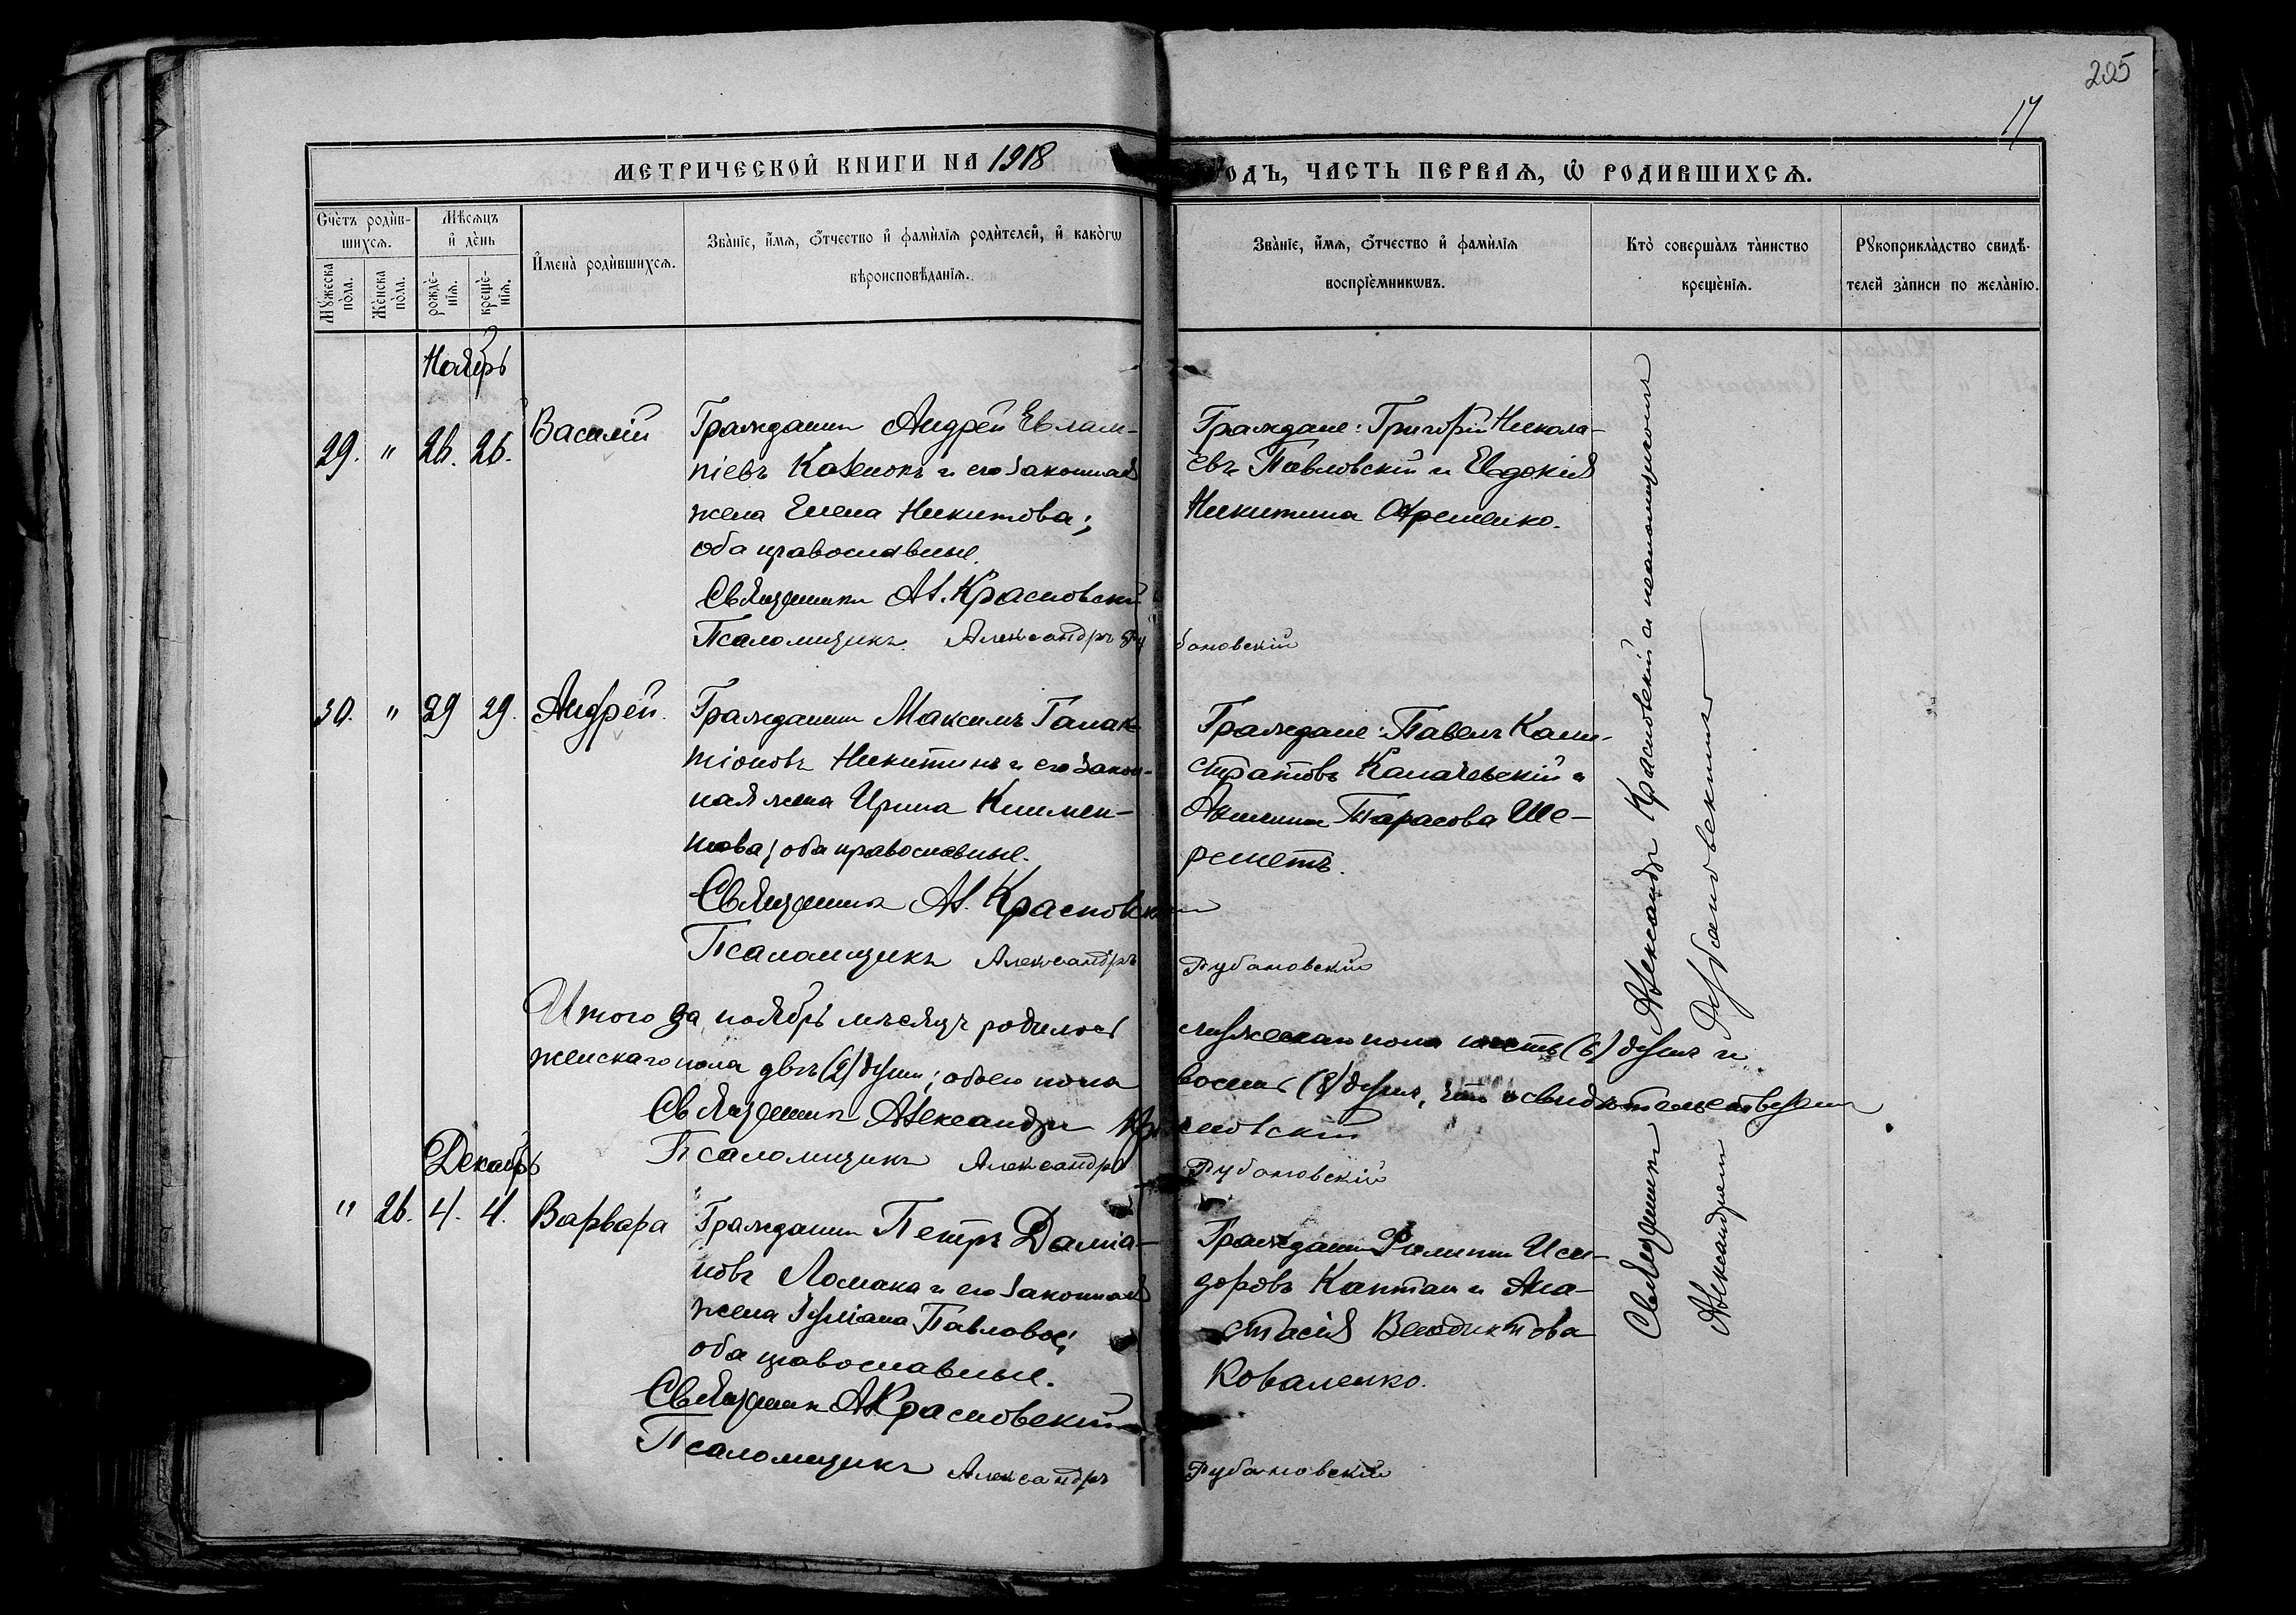 205
17
МЕТРИЧЕСКОЙ КНИГИ НА 1918 ГОДЪ, ЧАСТЬ ПЕРВАЯ, Ѡ РОДИВШИХСЯ.
Счетъ родившихся.
Мужеска пола.
Женска пола.
Мѣсяцъ и день
рожденія.
крещенія.
Имена родившихся.
Званіе, имя, отчество и фамилія родителей, и какогω
вѣроисповѣданія.
Званіе, имя, отчество и фамилія
воспріемникωвъ.
Кто совершалъ таинство
крещенія.
Рукоприкладство свидѣ-
телей записи по желанію.
Ноябрь
29. " 26. 26. Василій
Гражданинъ Андрей Евлам-
піевъ и его законная
жена Елена Никитова;
оба православные.
Священникъ Ал. Красновскій
Псаломщикъ Александръ Рубановскій
Граждане: Григорій Никола-
евъ Павловскій и Евдокія
Никитина
30. " 29 29. Андрей.
Гражданинъ Максимъ Галак-
тіоновъ Никитинъ и его закон-
ная жена Ирина Климен-
това; оба православные.
Священникъ Ал. Красновскій
Псаломщикъ Александръ Рубановскій
Граждане: Павелъ Кали-
стратовъ Калачевскій и
Акилина Тарасова Ше-
реметъ.
Итого за ноябрь мѣсяцъ родилось мужескаго пола шесть (6) душъ и
женскаго пола двѣ (2) души; обоего пола восемь (8) душъ, что и свидѣтельствуемъ
Священникъ Александръ Красновскій
Псаломщикъ Александръ Рубановскій
Декабрь
" 26. 4. 4. Варвара
Гражданинъ Петръ Даміа-
новъ Ломака и его законная
жена Іуліана Павлова;
оба православные.
Священникъ Ал Красновскій
Псаломщикъ Александръ Рубановскій
Гражданинъ Филиппъ Иси-
доровъ Каптан и Ана-
стасія Венедиктова
Коваленко.
Священникъ Александръ Красновскій съ псаломщикомъ
Александремъ Рубановскимъ